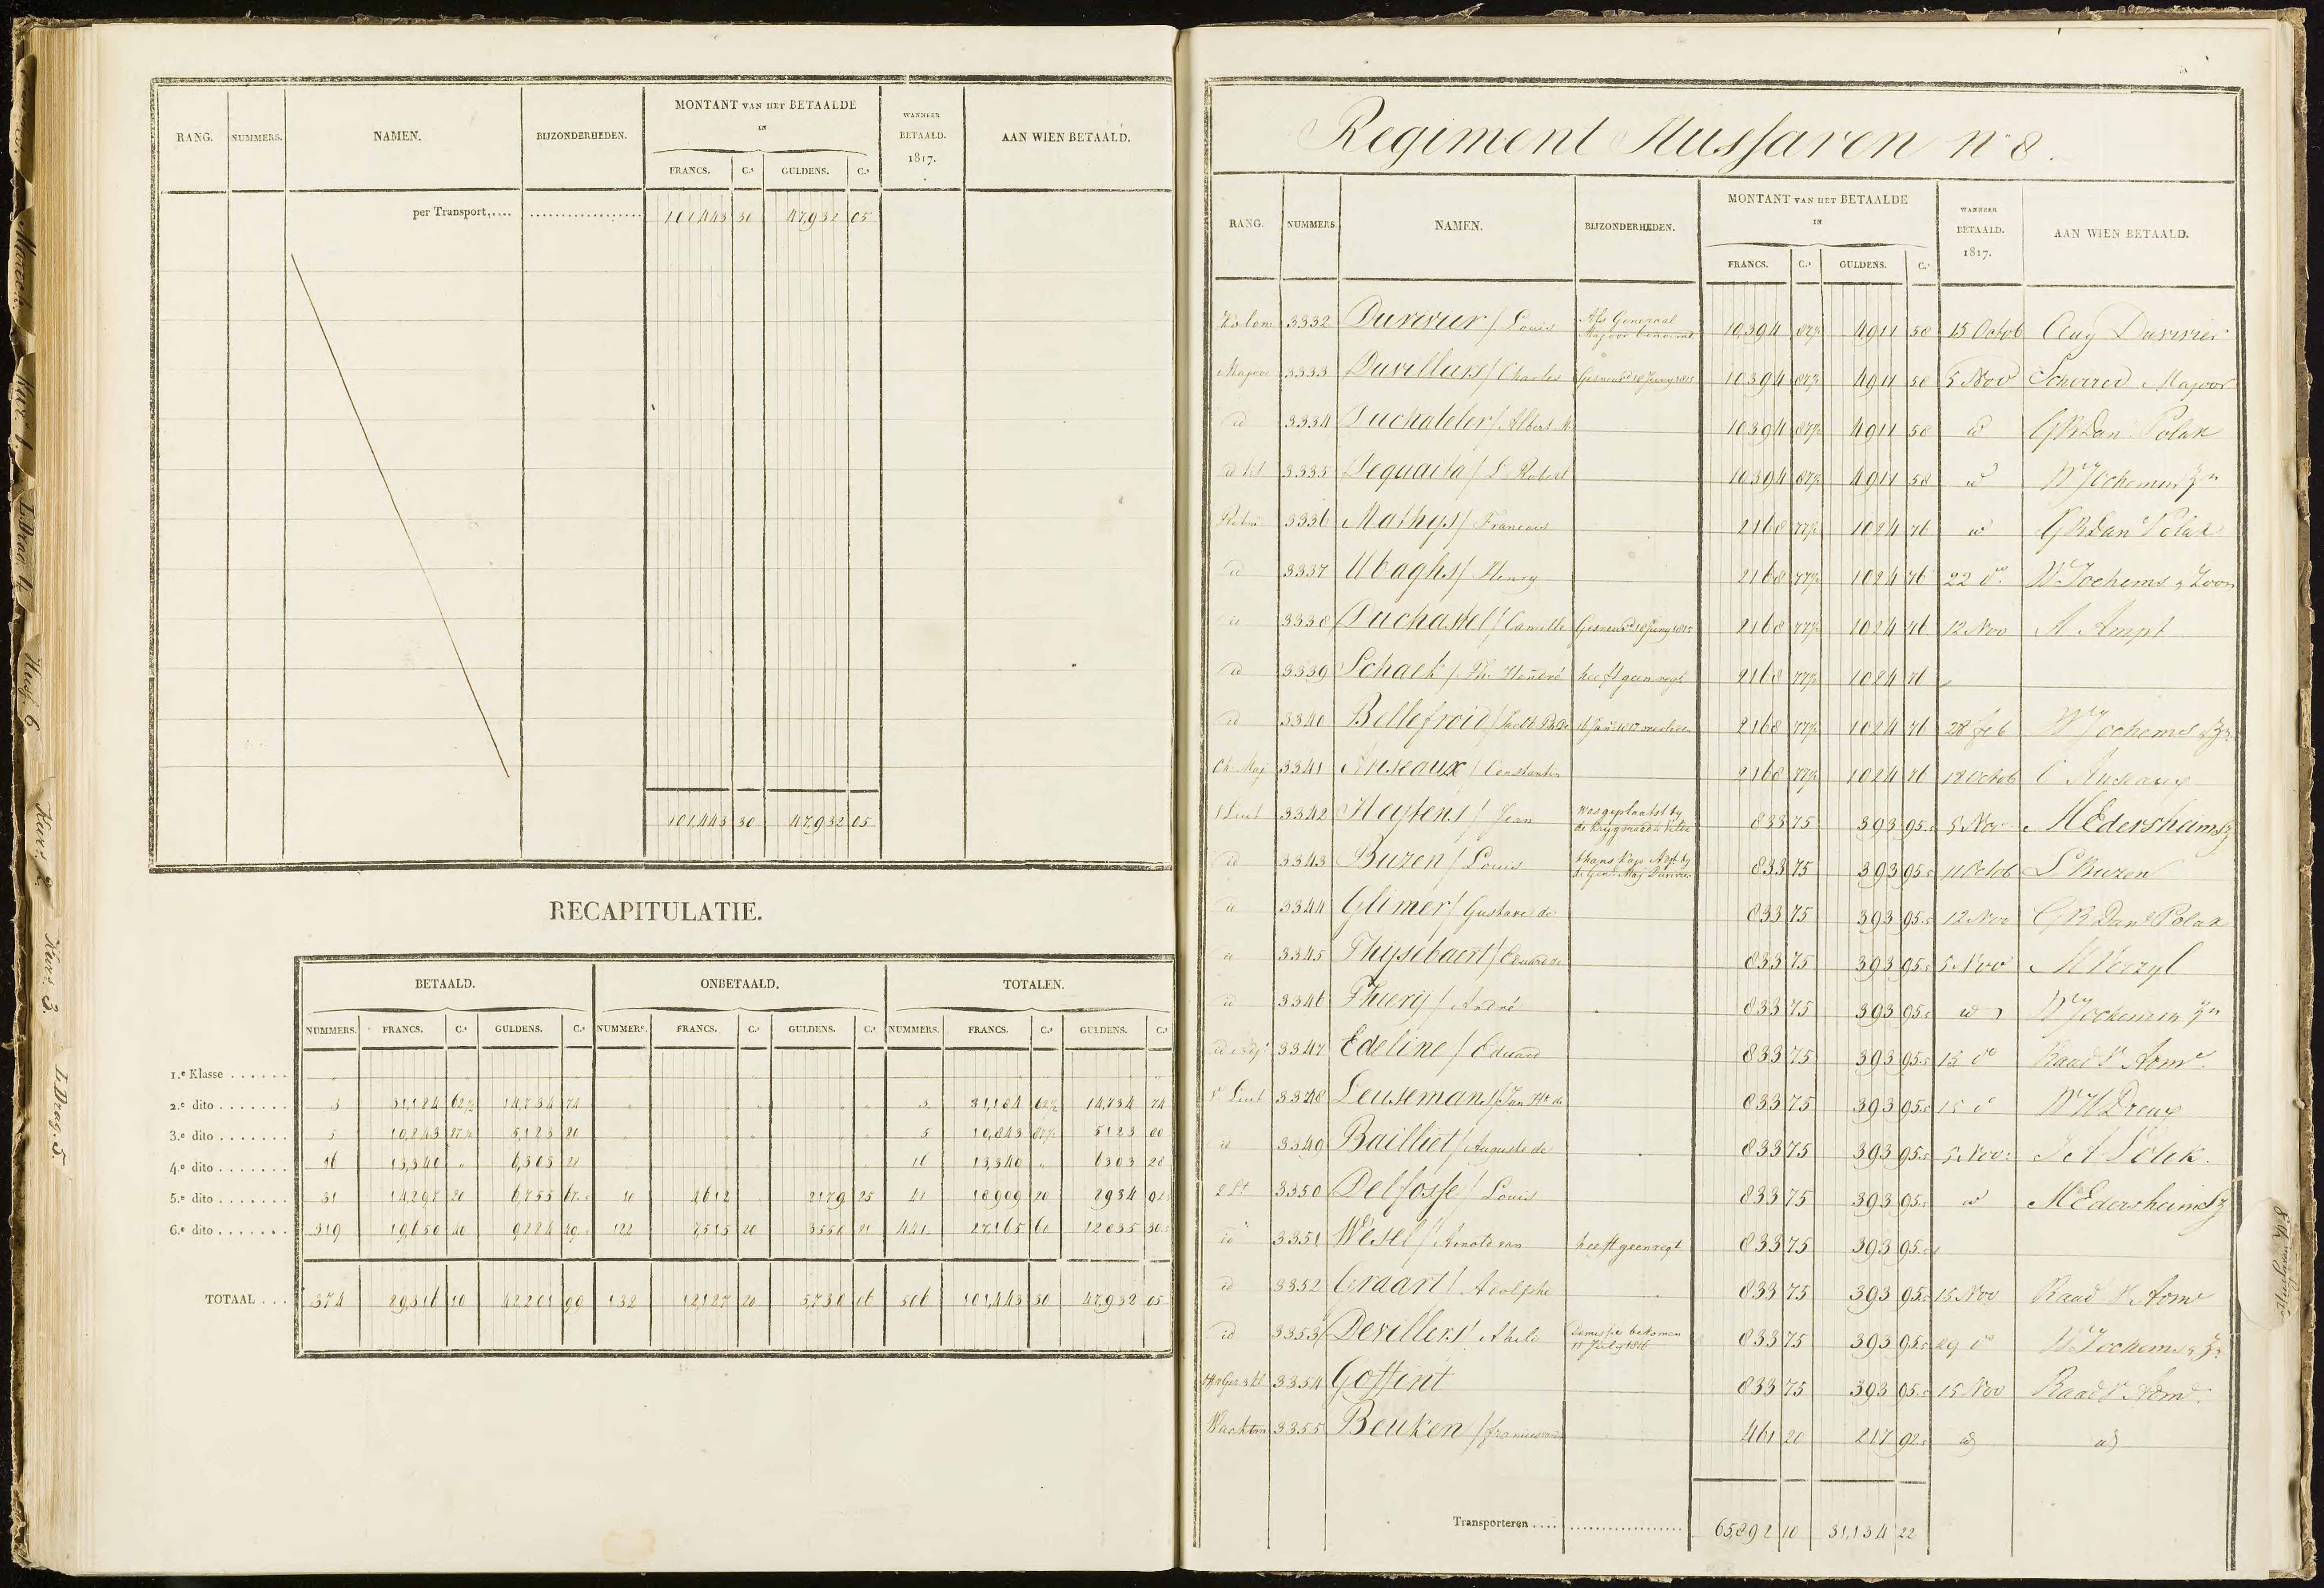 RANG. NUMMERS. NAMEN. BIJZONDERHEDEN. MONTANT VAN HET BETAALDE IN FRANCS. C.s GULDENS. C.s WANNEER BETAALD. 1817. AAN WIEN BETAALD.
per Transport..... 101,443 30 47,932 05
101,443 30 47,932 05
RECAPITULATIE.
BETAALD. ONBETAALD. TOTALEN.
NUMMERS. FRANCS. C.s GULDENS. C.s NUMMERS. FRANCS. C.s GULDENS. C.s NUMMERS. FRANCS. C.s GULDENS. C.s
1.e Klasse
2.e dito 3 31,184 62½ 14,734 74 3 31,184 62½ 14,734 74
3.e dito 5 10,843 87½ 5,123 80 5 10,843 87½ 5123 80
4.e dito 16 13,340 6,303 28 16 13,340 6303 28
5.e dito 31 14,297 20 6,755 67 10 4612 2179 25 41 18909 20 8934 92
6.e dito 319 19,650 40 9284 49 122 7,515 20 3550 81 441 27,165 60 12835 30
TOTAAL 374 89,316 10 42201 99 132 12,127 20 5,730 06 506 101,443 30 47,932 05
Regiment Hussaren no 8.
RANG. NUMMERS. NAMEN. BIJZONDERHEDEN. MONTANT VAN HET BETAALDE IN FRANCS. C.s GULDENS. C.s WANNEER BETAALD. 1817. AAN WIEN BETAALD.
Kolon 3332 Duvivier / Louis Als Generaal Majoor benoemd 10,394 87½ 4911 58 15 Octob Aug Duvivier
Majoor 3333 Duvillers / Charles Gesneuvd 18 Juny 1815 10394 87½ 4911 58 5 Nov Scherrer Majoor
id 3334 Duchateler / Albert 10394 87½ 4911 58 id G R Danl Polak
id 3335 Dequaita / Robert 10394 87½ 4911 58 id Wr Jochems Zn
Ritm 3336 Mathys / Francois 2168 77½ 1024 76 id G R Danl Polak
id 3337 Ubaghs / Henry 2168 77½ 1024 76 22 do Wr Jochems & Zoon
id 3338 Duchastel / Camille Gesneuvd 18 Juny 1815 2168 77½ 1024 76 12 Nov A Ampt
id 3339 Schaek / heeft geen regt 2168 77½ 1024 76
id 3340 Bellefroid / 2168 77½ 1024 76 28 feb Wr Jochems & Zn
Ch Maj 3341 Anseaux / Constantin 2168 77½ 1024 76 18 Octob C Anseaux
1 Luit 3342 Heytens / Jean Was geplaatst by de Krygsraad 833 75 393 95 5 Nov M Edershamsz
id 3343 Buzen / Louis thans Kap Adjt by de Genl Maj Duvivier 833 75 393 95 11 Octob L Buzen
id 3344 Glimer / Gustave de 833 75 393 95 12 Nov G R Danl Polak
id 3345 Thijsebaert / Eduard de 833 75 393 95 5 Nov M Veezyl
id 3346 Thierij / André 833 75 393 95 id Wr Jochems Zn
id Adjt 3347 Edeline / Eduard 833 75 393 95 15 do Raad v Adm
Luit 3348 Leuseman / Jan de 833 75 393 95 15 do
id 3349 Bailliet / Auguste de 833 75 393 95 5 Nov
2 Lt 3350 Delfosse / Louis 833 75 393 95 id M Edersheimsz
id 3351 Wesel / Arnold van heeft geen regt 833 75 393 95
id 3352 Graart / Adolphe 833 75 393 95 15 Nov Raad v Adm
id 3353 Devillers / Demissie bekomen July 1816 833 75 393 95 29 do Wr Jochems & Zn
3354 Goffint 833 75 393 95 15 Nov Raad v Adm
Wachtm 3355 Beuken / 461 20 217 92 id id
Transporteren 65,892 10 31,134 22